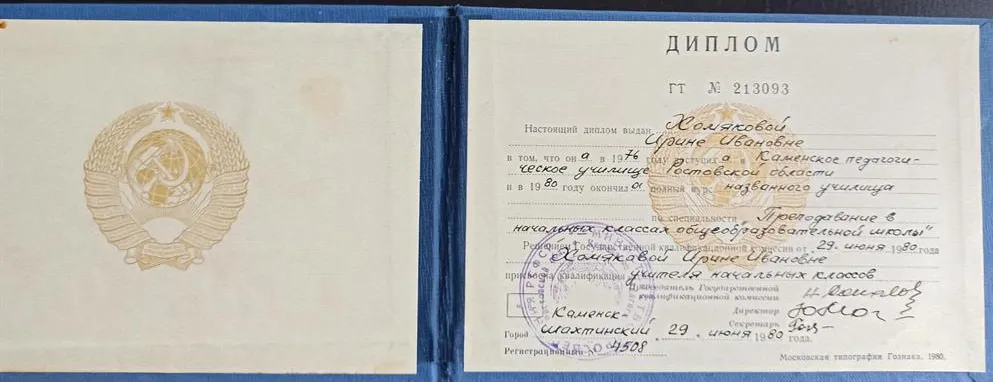 ДИПЛОМ
ГТ № 213093
Настоящий диплом выдан Хомяковой
Ирине Ивановне
в том, что она в 1976 году поступила в Каменское педагоги-
ческое училище Ростовской области
и в 1980 году окончила полный курс названного училища
по специальности „Преподавание в
начальных классах общеобразовательной школы"
Решением Государственной квалификационной комиссии от 29 июня 1980 года
Хомяковой Ирине Ивановне
присвоена квалификация учителя начальных классов
Председатель Государственной
квалификационной комиссии
Директор
Каменск
Секретарь
Город Шахтинский 29 июня 1980 года.
Регистрационный № 4508
Московская типография Гознака. 1980.